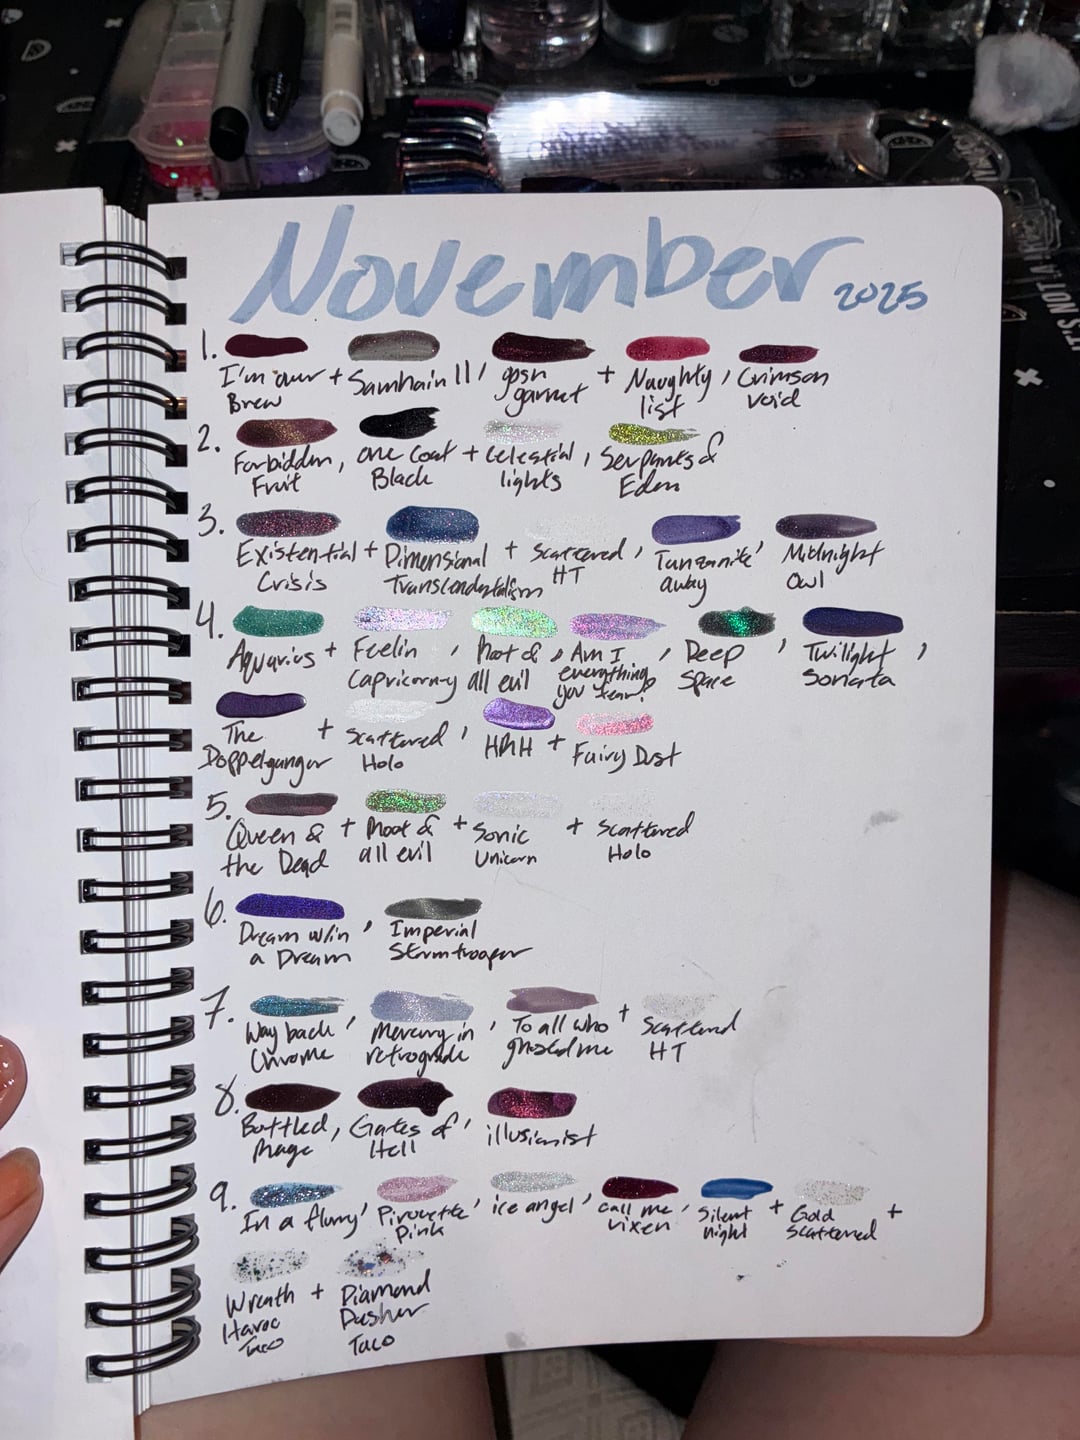 November 2025
1. I'm our Brew + Samhain II, gosh garnet + Naughty list, Crimson void
2. Forbidden Fruit, one Coat Black + Celestial lights, Serpants of Eden
3. Existential Crisis + Dimensional Transcendentalism + Scattered HT, Tanzanite away, Midnight Owl
4. Aquarius + Feelin Capricorn-y, Root of all evil, Am I everything you fear?, Deep Space, Twilight Sonata,
The Doppelganger + Scattered Holo, HRH + Fairy Dust
5. Queen of the Dead + Root of all evil + Sonic Unicorn + Scattered Holo
6. Dream w/in a Dream, Imperial Stormtrooper
7. Way back Chrome, Mercury in retrograde, To all who ghosted me + Scattered HT
8. Bottled Rage, Gates of Hell, illusionist
9. In a flurry, Pirouette Pink, ice angel, call me vixen, Silent night + Gold scattered +
Wreath Havoc Taco + Diamond Dasher Taco
IT'S NOT A